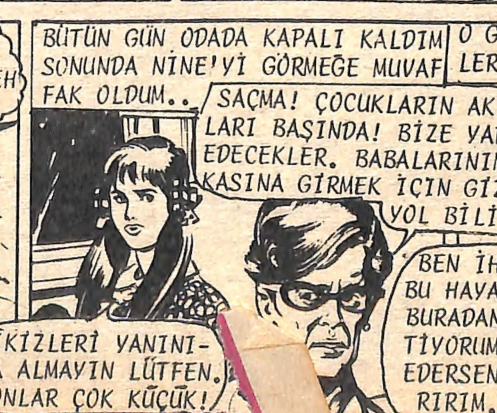 BÜTÜN GÜN ODADA KAPALI KALDIM
SONUNDA NİNE'Yİ GÖRMEĞE MUVAF
FAK OLDUM..
SAÇMA! ÇOCUKLARIN AK
LARI BAŞINDA! BİZE YA
EDECEKLER. BABALARINI
KASINA GİRMEK İÇİN Gİ
YOL BİLİ
BEN İH
BU HAYA
BURADAN
TİYORUM
EDERSEN
RIRIM.
İKİZLERİ YANINI-
A ALMAYIN LÜTFEN.
ONLAR ÇOK KÜÇÜK!
O G
LER
EH